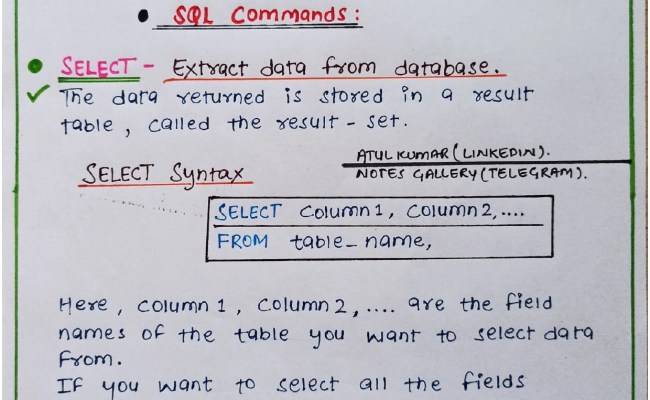 • SQL Commands :
• SELECT - Extract data from database.
✓ The data returned is stored in a result
table , called the result - set.
ATUL KUMAR (LINKEDIN).
NOTES GALLERY (TELEGRAM).
SELECT Syntax
SELECT Column1, Column2,....
FROM table_name,
Here , column 1 , Column 2 , .... are the field
names of the table you want to select data
from.
If you want to select all the fields